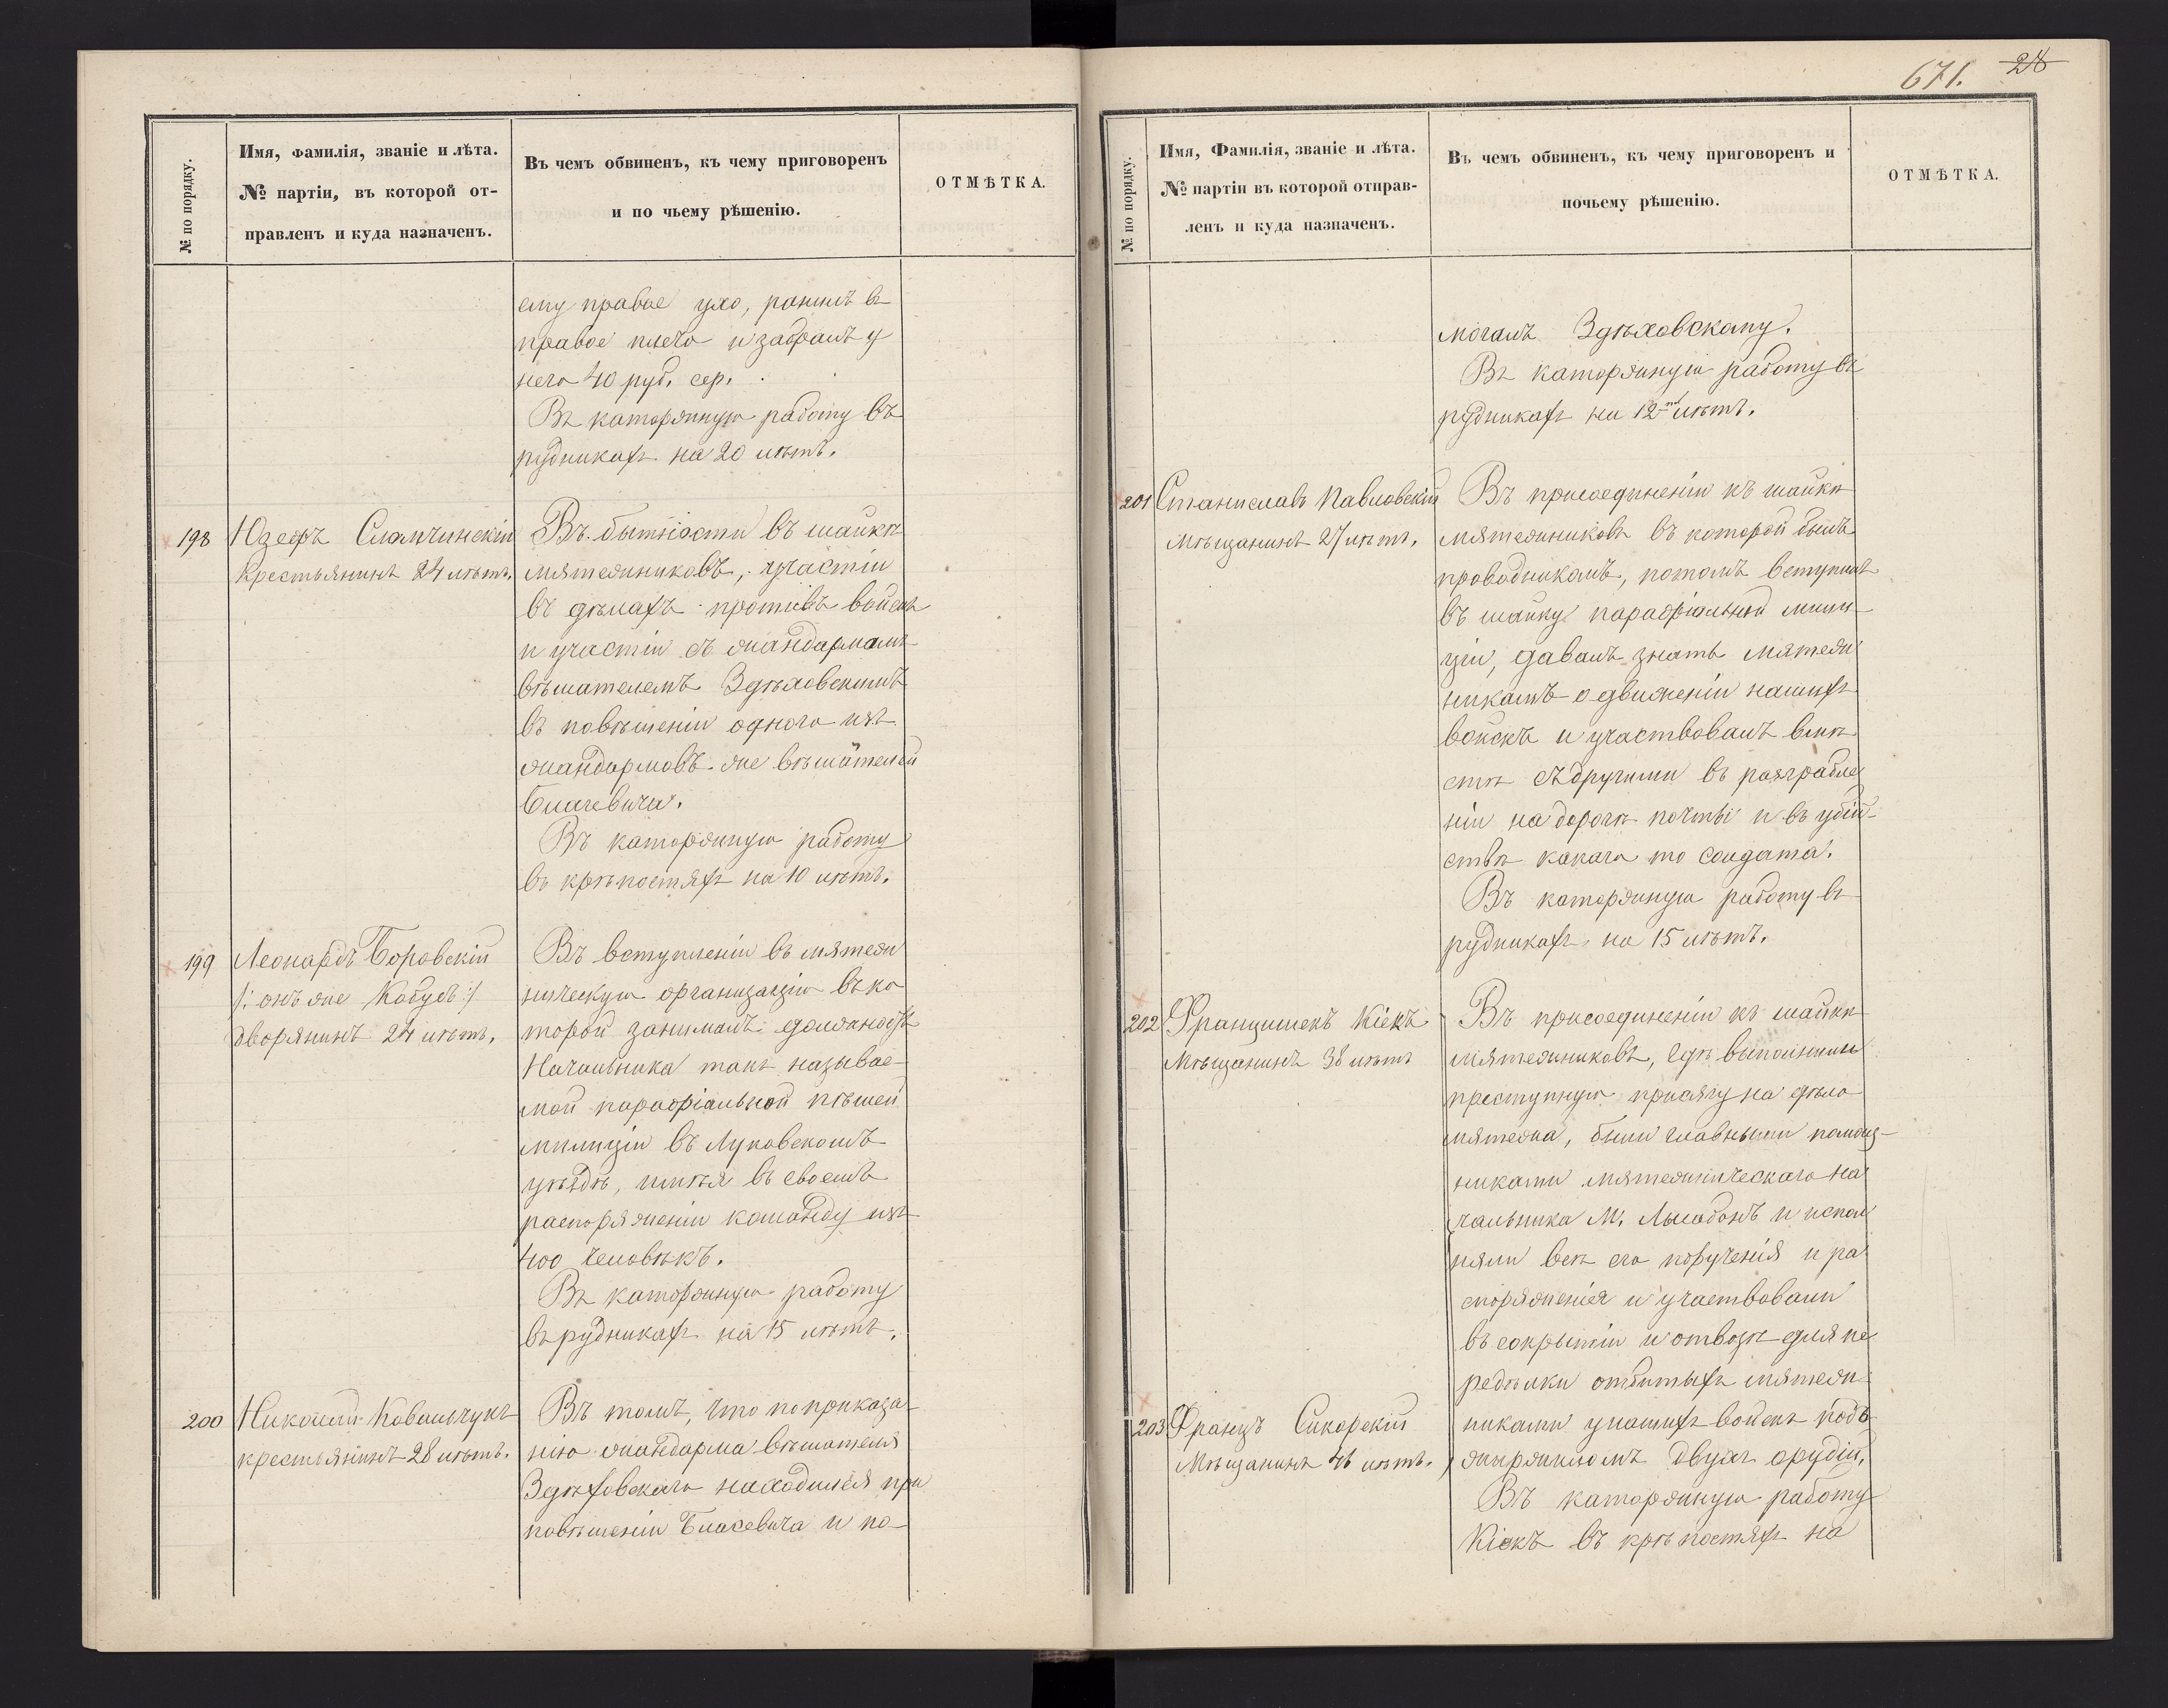 № по порядку.
Имя, фамилія, званіе и лѣта.
№ партіи, въ которой от-
правленъ и куда назначенъ.
Въ чемъ обвиненъ, къ чему приговоренъ
и по чьему рѣшенію.
ОТМѢТКА.
ему правое ухо, ранилъ въ
правое плечо и забралъ у
него 40 руб. сер.
Въ каторжную работу въ
рудникахъ на 20 лѣтъ.
198
Юзефъ Сламчинскій
Крестьянинъ 24 лѣтъ.
Въ бытности въ шайкѣ
мятежниковъ, участіи
въ дѣлахъ противъ войскъ
и участіи съ жандармомъ
вѣшателемъ Здѣховскимъ
въ повѣшеніи одного изъ
жандармовъ же вѣшателей
Блачевича.
Въ каторжную работу
въ крѣпостяхъ на 10 лѣтъ.
199
Леонардъ Боровскій
/: онъ же Кобусъ :/
дворянинъ 24 лѣтъ.
Въ вступленіи въ мятеж
ническую организацію въ ко
торой занималъ должность
Начальника такъ называе-
мой парафіальной пѣшей
милиціи въ Луковскомъ
уѣздѣ, имѣя въ своемъ
распоряженіи команду изъ
400 человѣкъ.
Въ каторжную работу
въ рудникахъ на 15 лѣтъ.
200
Николай Ковальчукъ
крестьянинъ 28 лѣтъ.
Въ томъ, что по приказа
нію жандарма вѣшателя
Здѣховскаго находился при
повѣшеніи Блачевича и по-
671. 28
№ по порядку.
Имя, Фамилія, званіе и лѣта.
№ партіи въ которой отправ-
ленъ и куда назначенъ.
Въ чемъ обвиненъ, къ чему приговоренъ и
почьему рѣшенію.
ОТМѢТКА.
могалъ Здѣховскому.
Въ каторжную работу въ
рудникахъ на 12-ть лѣтъ.
201
Станиславъ Павловскій
Мѣщанинъ 27 лѣтъ.
Въ присоединеніи къ шайкѣ
мятежниковъ въ которой былъ
проводникомъ, потомъ вступилъ
въ шайку парафіальной мили
ціи, давалъ знать мятеж
никамъ о движеніи нашихъ
войскъ и участвовалъ вмѣ
стѣ съ другими въ разграбле
ніи на дорогѣ почты и въ убій-
ствѣ какого то солдата.
Въ каторжную работу въ
рудникахъ на 15 лѣтъ.
202
Францишекъ Кіекъ
Мѣщанинъ 38 лѣтъ
Въ присоединеніи къ шайкѣ
мятежниковъ, гдѣ выполнили
преступную присягу на дѣло
мятежа, были главными помощ-
никами мятежническаго на
чальника М. Лысадонъ и испол
няли всѣ его порученія и ра
споряженія и участвовали
въ сокрытіи и отвозѣ для пе
редѣлки отбитыхъ мятеж
203
Францъ Сикорскій
Мѣщанинъ 46 лѣтъ.
никами у нашихъ войскъ подъ
двухъ орудій.
Въ каторжную работу
Кіекъ въ крѣпостяхъ на